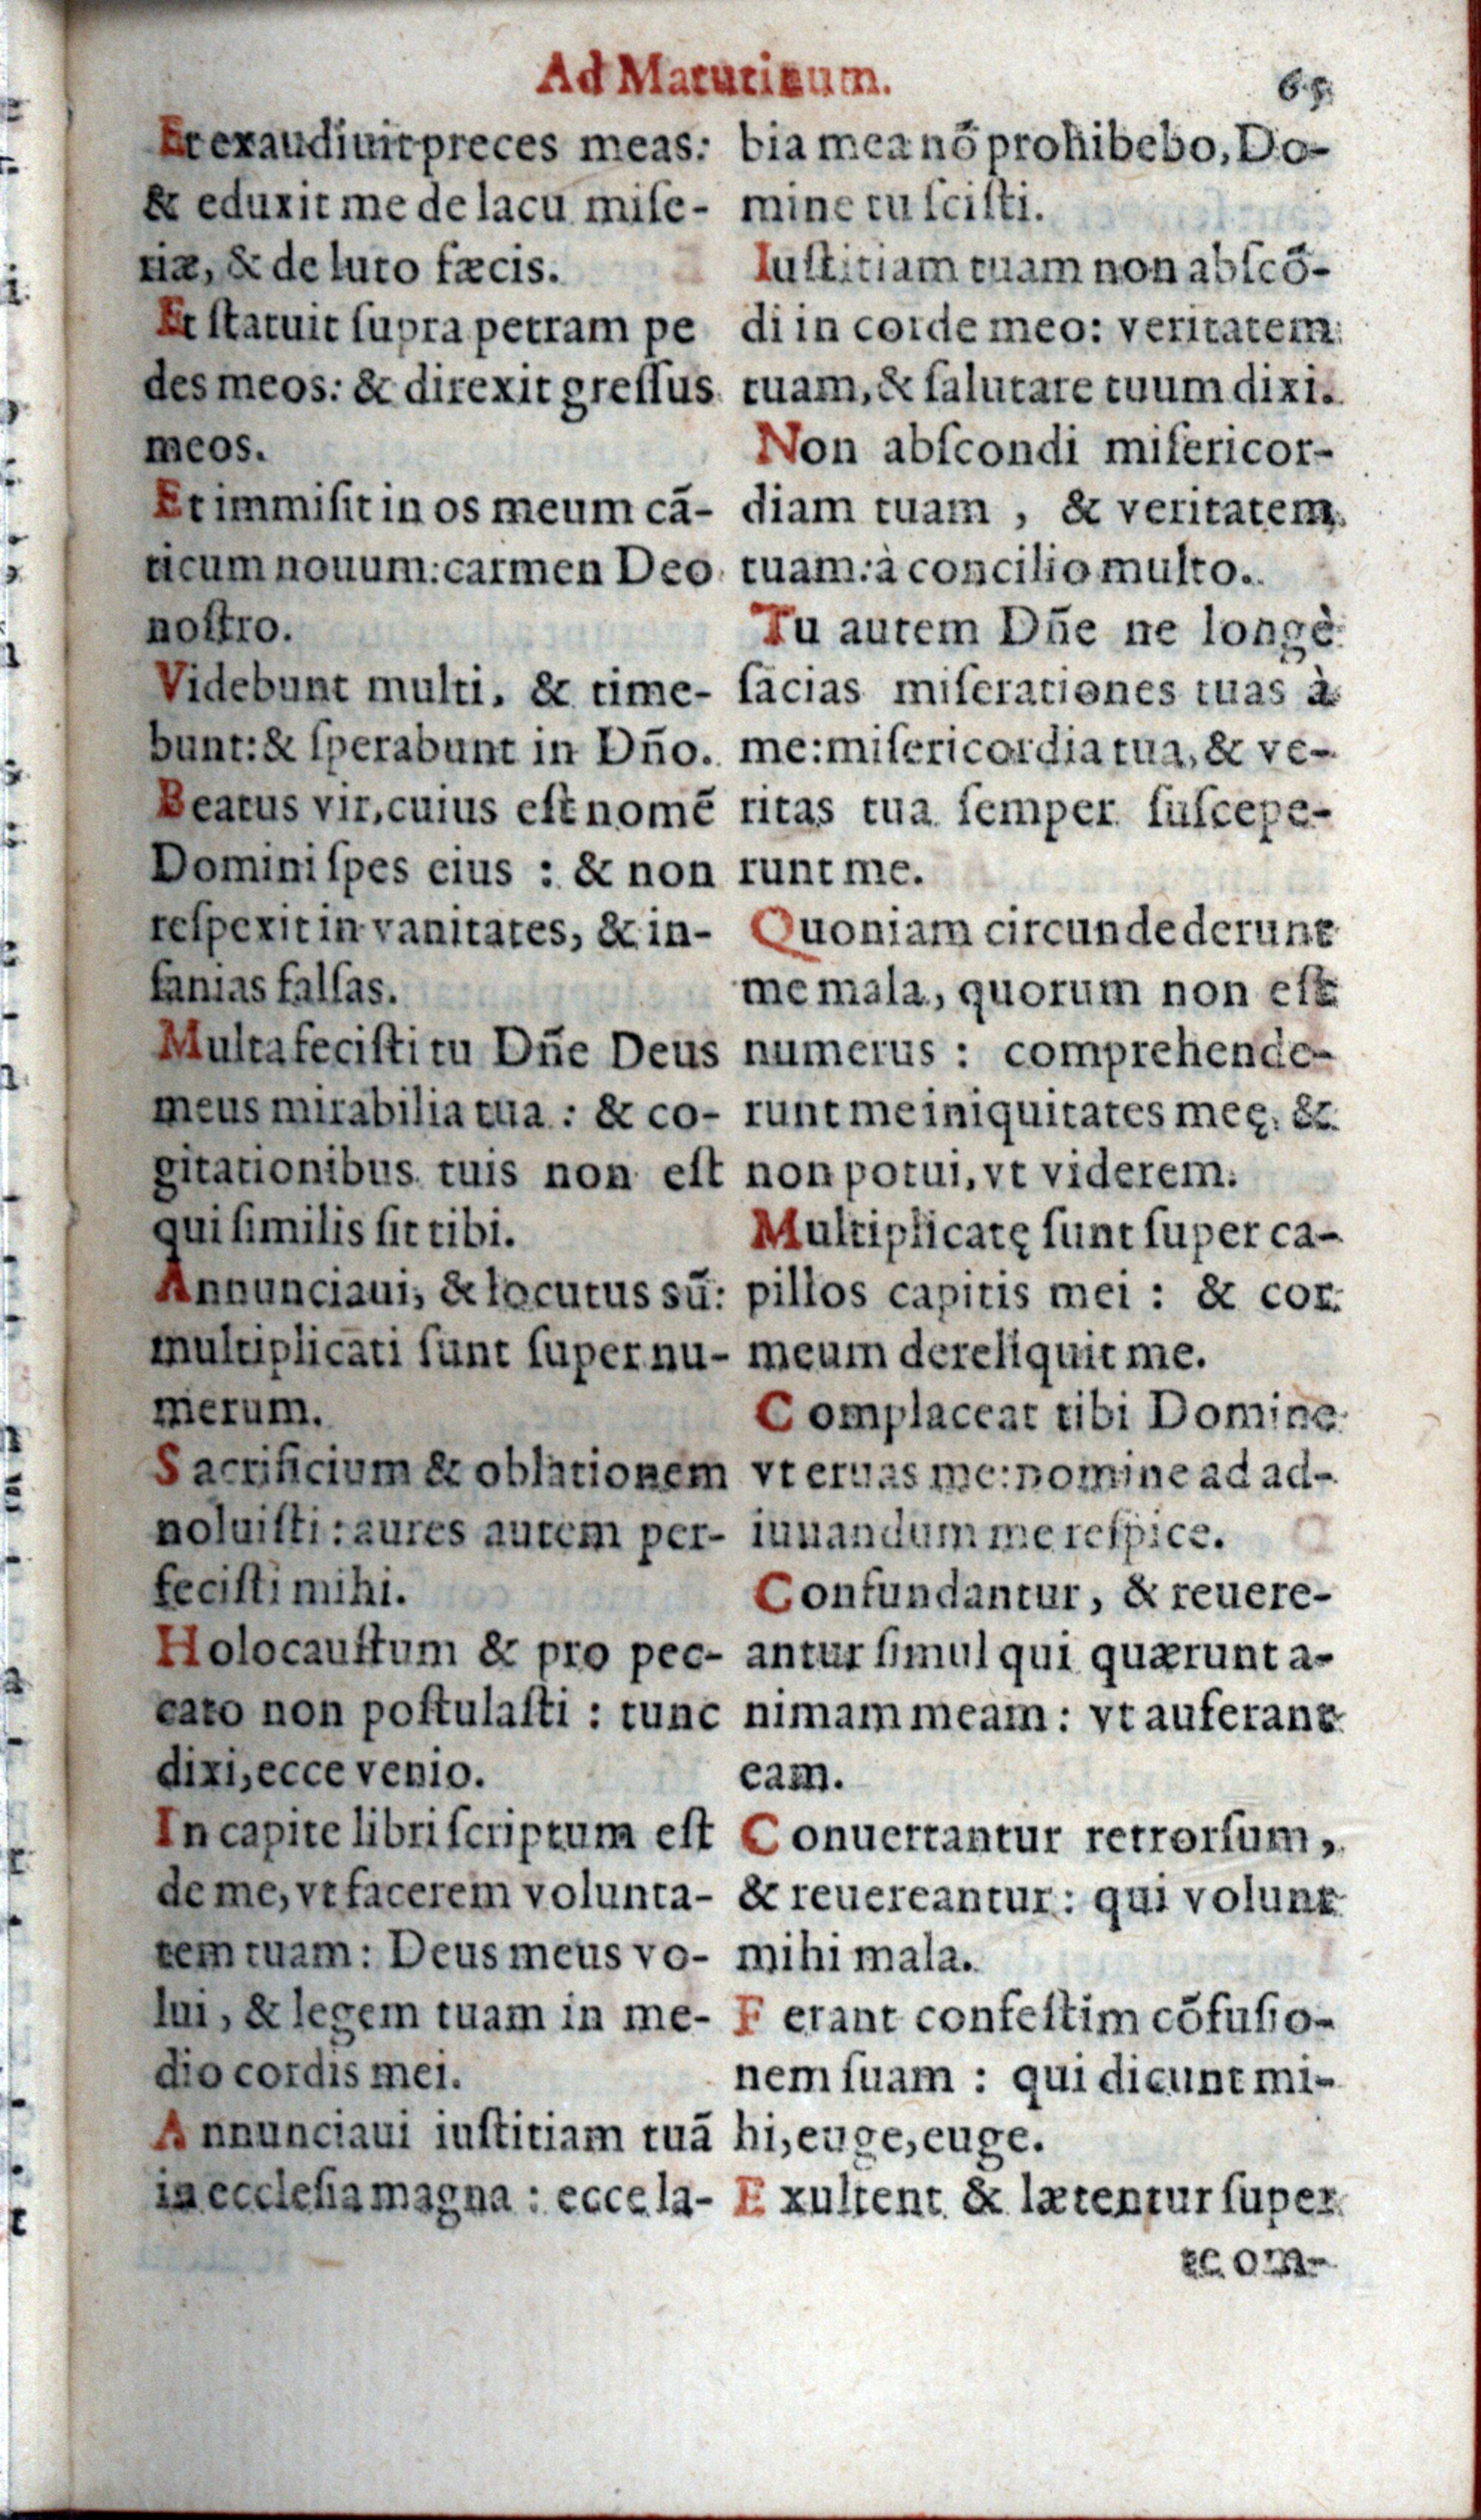 Ad Matutinum.
65
Et exaudiuit preces meas:
& eduxit me de lacu miſe-
riæ, & de luto fæcis.
Et ſtatuit ſupra petram pe
des meos: & direxit greſſus
meos.
Et immiſit in os meum cā-
ticum nouum: carmen Deo
noſtro.
Videbunt multi, & time-
bunt: & ſperabunt in Dño.
Beatus vir, cuius eſt nomē
Domini ſpes eius : & non
reſpexit in vanitates, & in-
ſanias falſas.
Multa feciſti tu Dñe Deus
meus mirabilia tua : & co-
gitationibus tuis non eſt
qui ſimilis ſit tibi.
Annunciaui, & locutus sū:
multiplicati ſunt ſuper nu-
merum.
Sacrificium & oblationem
noluiſti : aures autem per-
feciſti mihi.
Holocauſtum & pro pec-
cato non poſtulaſti : tunc
dixi, ecce venio.
In capite libri ſcriptum eſt
de me, vt facerem volunta-
tem tuam: Deus meus vo-
lui, & legem tuam in me-
dio cordis mei.
Annunciaui iuſtitiam tuā
in eccleſia magna : ecce la-
bia mea nō prohibebo, Do-
mine tu ſciſti.
Iuſtitiam tuam non abſcō-
di in corde meo: veritatem
tuam, & ſalutare tuum dixi.
Non abſcondi miſericor-
diam tuam , & veritatem
tuam: à concilio multo.
Tu autem Dñe ne longè
facias miſerationes tuas à
me: miſericordia tua, & ve-
ritas tua ſemper ſuſcepe-
runt me.
Quoniam circundederunt
me mala, quorum non eſt
numerus : comprehende-
runt me iniquitates meę, &
non potui, vt viderem.
Multiplicatę ſunt ſuper ca-
pillos capitis mei : & cor
meum dereliquit me.
Complaceat tibi Domine
vt eruas me: nomine ad ad-
iuuandum me reſpice.
Confundantur, & reuere-
antur ſimul qui quærunt a-
nimam meam : vt auferant
eam.
Conuertantur retrorſum,
& reuereantur : qui volunt
mihi mala.
Ferant confeſtim cōfuſio-
nem ſuam : qui dicunt mi-
hi, euge, euge.
Exultent & lætentur ſuper
te om-